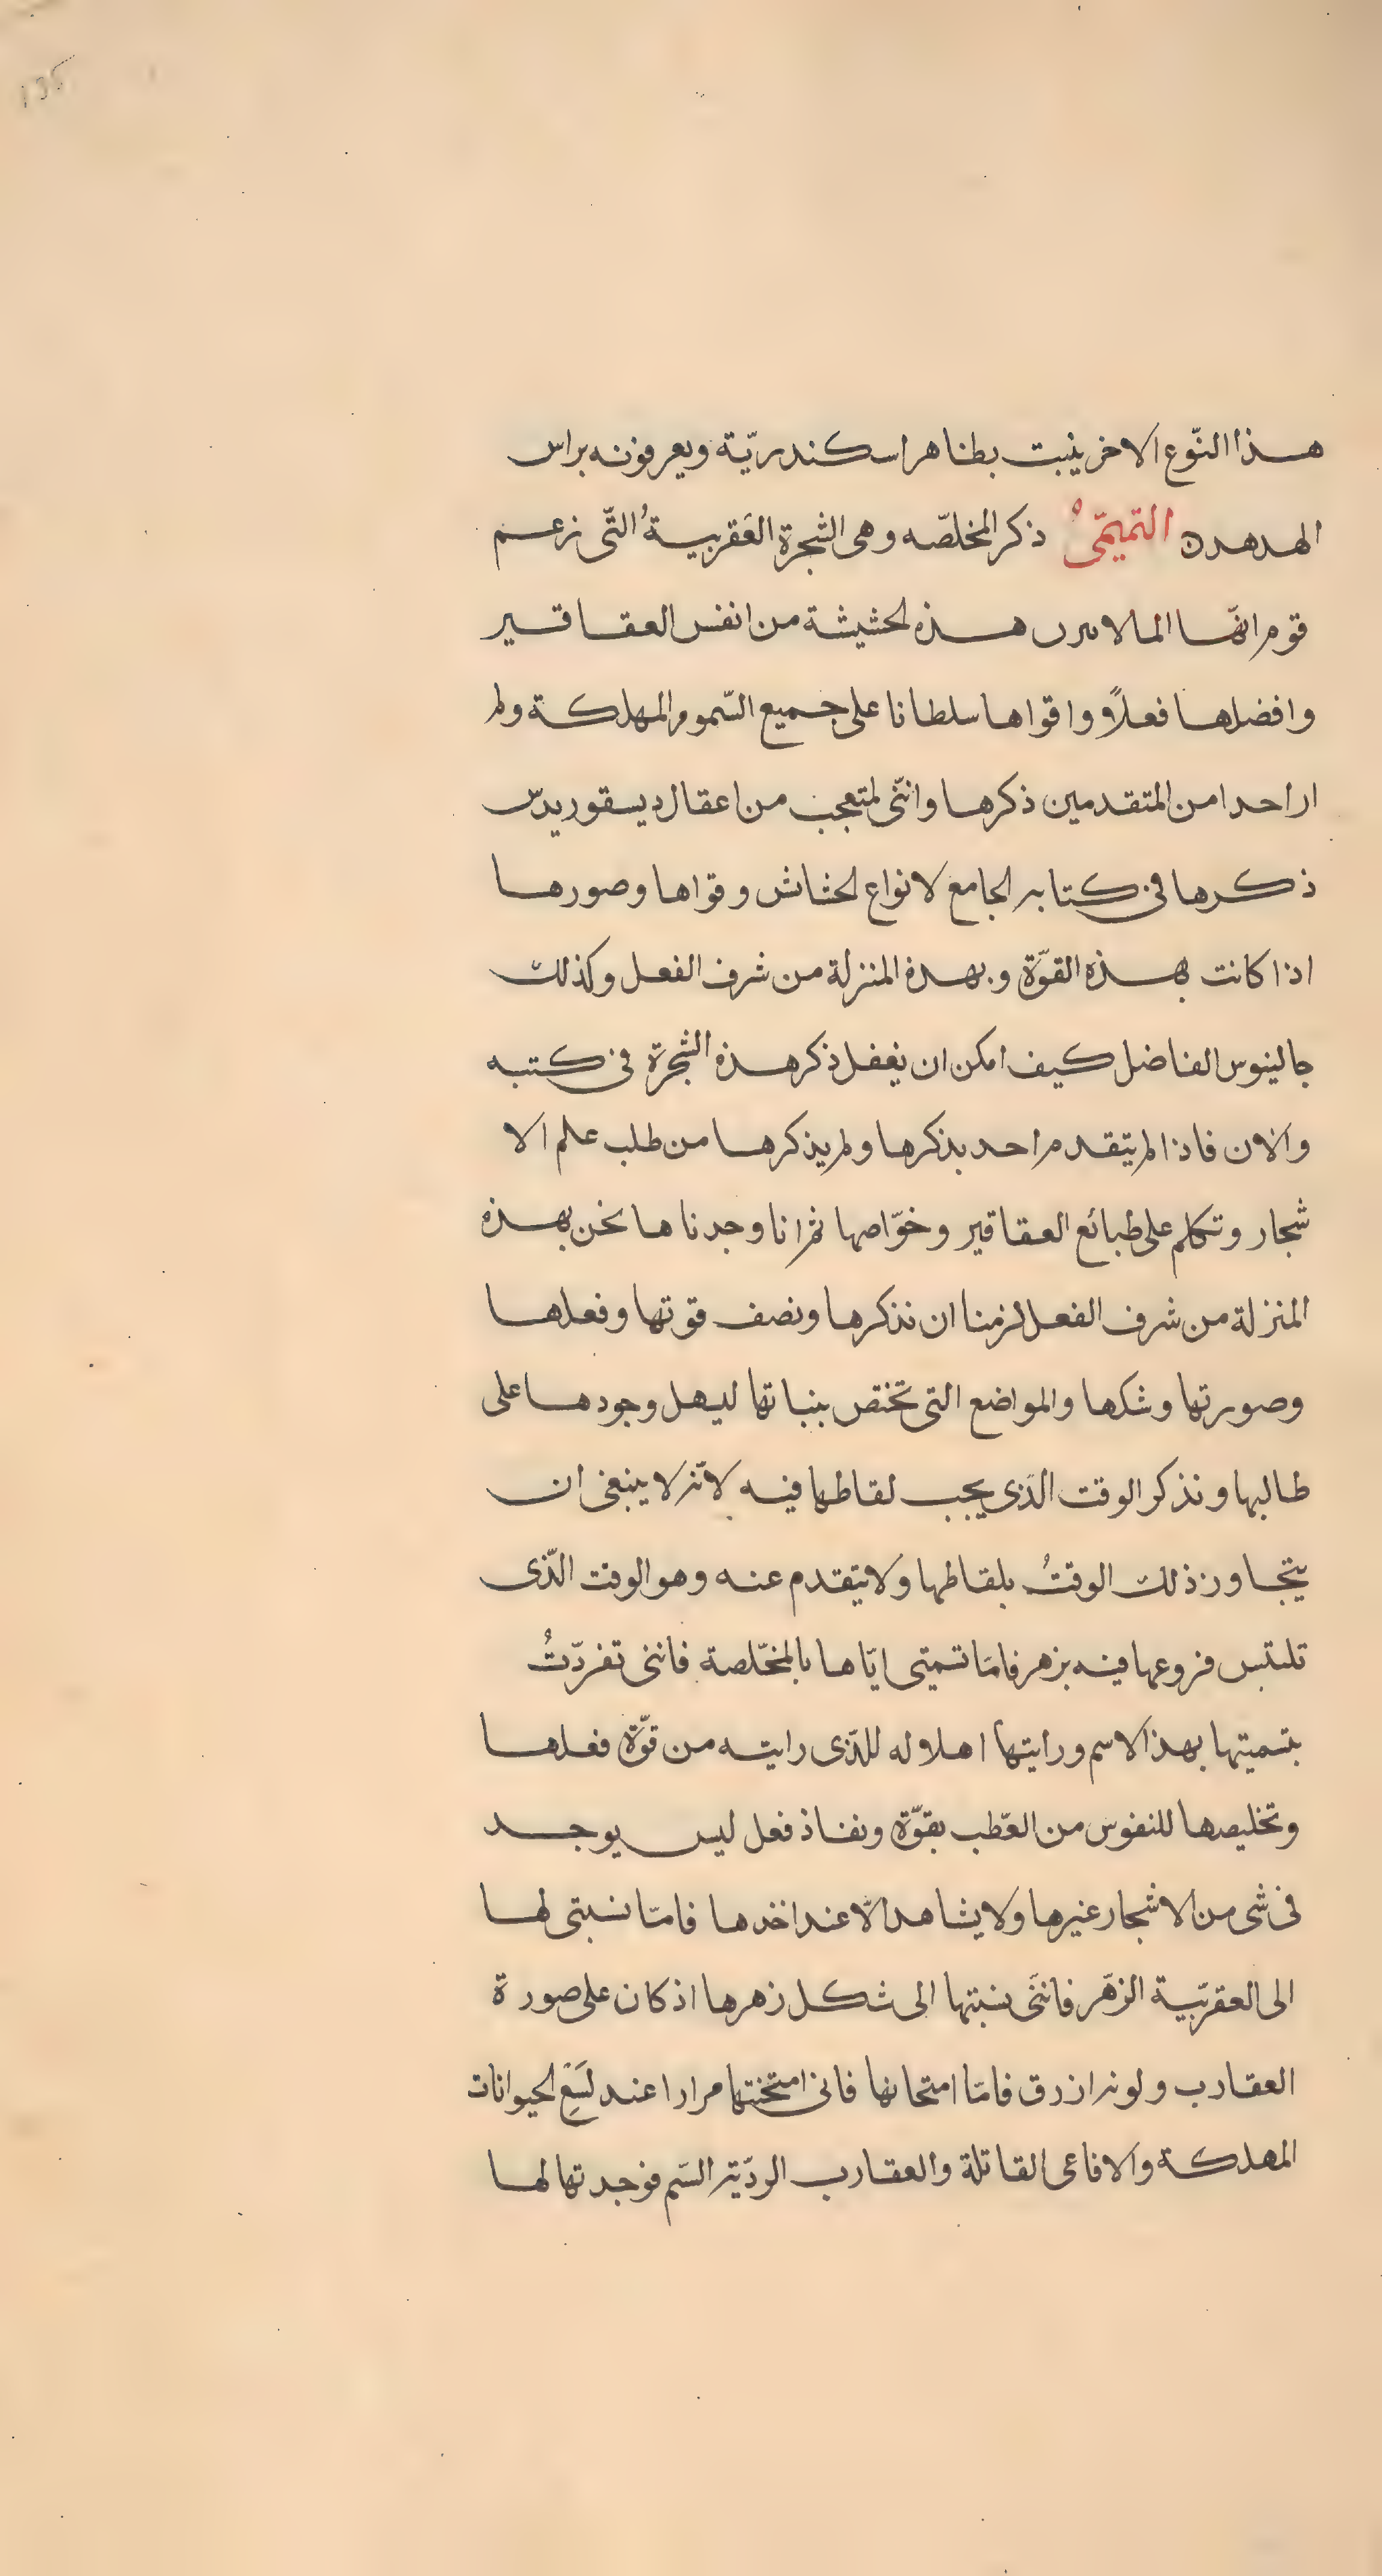 هذا النّوع الاخر ينبت بظاهر اسكندريّة ويعرفونه براس
الهدهدن التميمّىُ ذكر المخلصّه وهى الشجرة العَقربيةُ التّى زعم
قوم انهّا المالا هذه لحشيشة من انفس العقاقير
وافضلها فعلاً واقواها سلطانا على جميع السّموم المهلكة ولم
ار احدا من المتقدمين ذكرها وانّنى لمتعجب من اعقال ديسقوريدس
ذكرها فى كتابه الجامع لانواع لحشاش وقواها وصورها
اذا كانت بهذه القوّة وبهذه المنزلة من شرف الفعل وكذلك
جالينوس الفاضل كيف امكن ان يغفل ذكر هذه الشجرة فى كتبه
والان فاذا لم يتقدم احد بذكرها ولم يذكرها من طلب علم الا
شجار وتكلم على طبائع العقاقير وخوّاصها ثم انا وجدناها نحن بهذه
المنزلة من شرف الفعل لزمنا ان نذكرها ونصف قوتها وفعلها
وصورتها وشكها والمواضع التى تختص بنباتها ليهل وجودها على
طالبها ونذكر الوقت الذّى يجب لقاطها فيه لانّه لا ينبغى ان
يتجاوز ذلك الوقتُ بلقاطها ولا يتقدم عنه وهو الوقت الذّى
تلبّس فروعها فيه بزهر فامّا تسميتى ايّاها بالمخّلصة فاننى تفرّدتُ
بتسميتها بهذا الاسم ورايتها اهلا له للذّى رايته من قوّة فعلها
وتخليصها للنفوس من العّطب بقوّة ونفاذ فعل ليس يوجد
فى شى من الاشجار غيرها ولا يشاهد الّا عند اخذها فامّا نسبتى لها
الى العقربيّة الزهّر فاننّى نسبتها الى شكل زهرها اذ كان على صورة
العقارب ولونه ازرق فامّا امتحانها فانى امتحنتها مرارا عند لسَعِ لحيوانات
المهلكة والافاعى القاتلة والعقارب الرديّة السّم فوجدتها لها